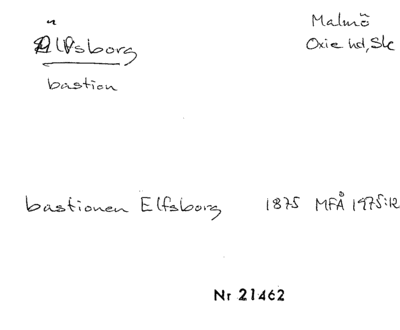 Älvsborg
Malmö
Oxie hd, Sk
bastion
bastionen Elfsborg 1875 MFÅ 1975:12
Nr 21462